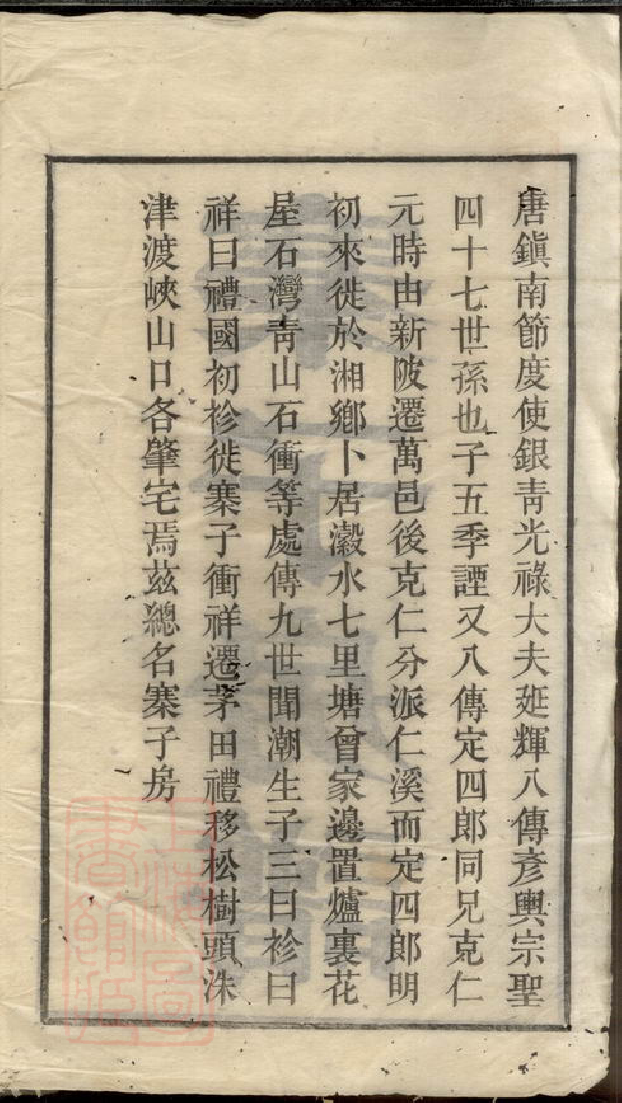 唐鎭南節度使銀靑光祿大夫延輝八傳彥輿宗聖
四十七世孫也子五季諲又八傳定四郎同兄克仁
元時由新陂遷萬邑後克仁分派仁溪而定四郎明
初來徙於湘鄉卜居瀫水七里塘曾家邊置爐裏花
屋石灣靑山石衝等處傳九世聞潮生子三曰袗曰
祥曰禮國初袗徙寨子衝祥遷茅田禮移松樹頭洙
津渡峽山口各肇宅焉茲總名寨子房